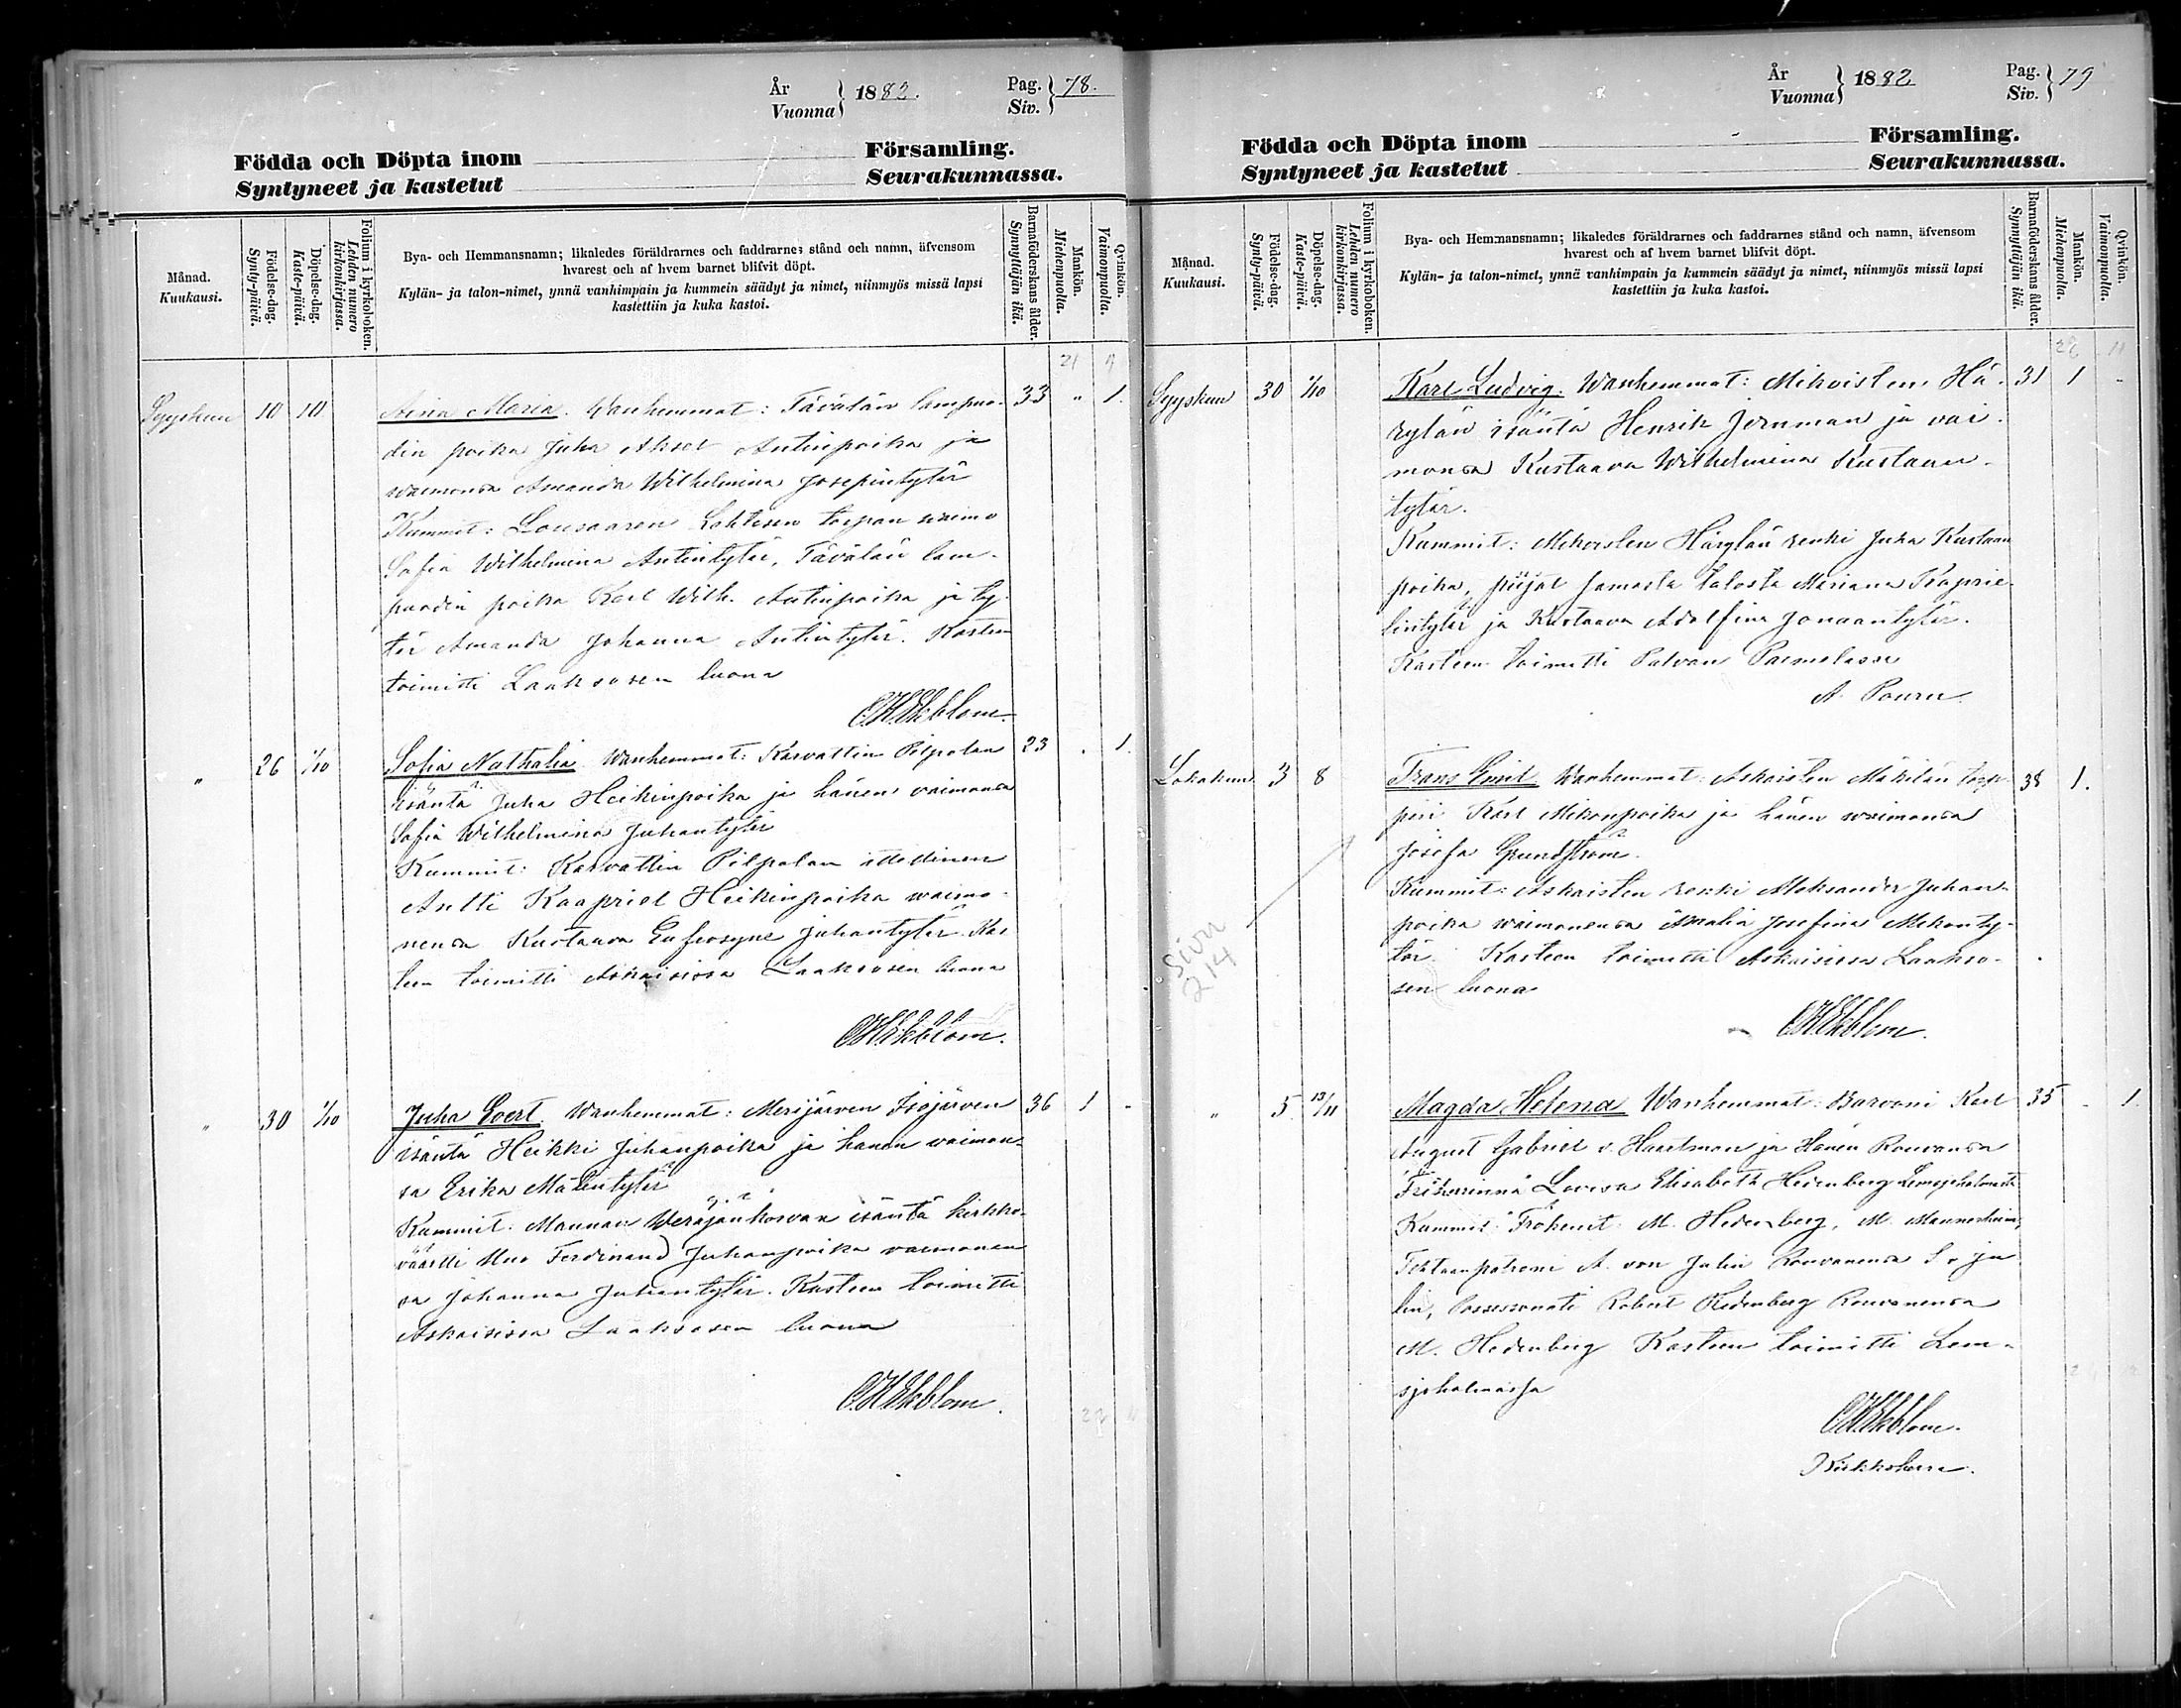 År
Vuonna } 1882.
Pag.
Siv. } 78.
Födda och Döpta inom Församling.
Syntyneet ja kastetut Seurakunnassa.
Månad.
Kuukausi.
Födelse-dag.
Synty-päivä.
Döpelse-dag.
Kaste-päivä.
Folium i kyrkoboken.
Lehden numero kirkonkirjassa.
Bya- och Hemmansnamn; likaledes föräldrarnes och faddrarnes stånd och namn, äfvensom
hvarest och af hvem barnet blifvit döpt.
Kylän- ja talon-nimet, ynnä vanhimpain ja kummein säädyt ja nimet, niinmyös missä lapsi
kastettiin ja kuka kastoi.
Barnaföderskans ålder.
Synnyttäjän ikä.
Mankön.
Miehenpuolia.
Qvinkön.
Vaimonpuolia.
21 9
Syyskuu 10 10 Aina Maria. Wanhemmat: Tävälän lampuo- 33 " 1.
din poika Juha Aksel Antinpoika ja
waimonsa Amanda Wilhelmina Josepintytär
Kummit: Lousaaren Lahtisen torpan waimo
Sofia Wilhelmina Antintytär, Tävälän lam-
puodin poika Karl Wilh. Antinpoika ja ty-
tär Amanda Johanna Antintytär. Kasteen
toimitti Laaksosen luona
C.H.Ekblom.
" 26 1/10 Sofia Nathalia Wanhemmat: Karvattin Pilpolan 23 . 1.
isäntä Juha Heikinpoika ja hänen vaimonsa
Sofia Wilhelmina Juhantytär
Kummit: Karvattin Pilpolan
Antti Kaapriel Heikinpoika waimo-
nensa Kustaava Eufrosyne Juhantytär. Kas
teen toimitti Askaisissa Laaksosen luona
C.H.Ekblom.
" 30 1/10 Juha Evert Wanhemmat: Merijärven Isojärven 36 1 -
isäntä Heikki Juhanpoika ja hänen waimon-
sa Erika Matintytär
Kummit: Mannan Weräjänkorvan isäntä kirkko-
väärtti Ferdinand Juhanpoika vaimonen
sa Johanna Juhantytär. Kasteen toimitti
Askaisissa Laaksosen luona
C.H.Ekblom.
År
Vuonna } 1882
Pag.
Siv. } 79
Födda och Döpta inom Församling.
Syntyneet ja kastetut Seurakunnassa.
Månad.
Kuukausi.
Födelse-dag.
Synty-päivä.
Döpelse-dag.
Kaste-päivä.
Folium i kyrkoboken.
Lehden numero kirkonkirjassa.
Bya- och Hemmansnamn; likaledes föräldrarnes och faddrarnes stånd och namn, äfvensom
hvarest och af hvem barnet blifvit döpt.
Kylän- ja talon-nimet, ynnä vanhimpain ja kummein säädyt ja nimet, niinmyös missä lapsi
kastettiin ja kuka kastoi.
Barnaföderskans ålder.
Synnyttäjän ikä.
Mankön.
Miehenpuolia.
Qvinkön.
Vaimonpuolia.
22 11
Syyskuu 30 1/10 Karl Ludvig. Wanhemmat: Mikoisten Hä- 31 1 -
rylän isäntä Henrik Jernman ja vai-
monsa Kustaava Wilhelmina Kustaan-
tytär.
Kummit: Mikoisten Härylän renki Juha Kustaan
poika, piijat samasta talosta Mariana Kaprie-
lintytär ja Kustaava Adolfina Jonaantytär.
Kasteen toimitti Palvan
A.
Lokakuu 3 8 Frans Emil Wanhemmat: Askaisten Mäkilän torp- 38 1.
pari Karl Mikonpoika ja hänen waimonsa
Josefa Grundström.
Kummit: Askaisten renki Aleksander Juhan-
poika waimonensa Amalia Josefina Mikonty-
tär. Kasteen toimitti Askaisissa Laakso-
sen luona
C.H.Ekblom.
Sivu
214
" 5 13/11 Magda Helena Wanhemmat: Barooni Karl 35 - 1
August Gabriel v. Haartman ja Hänen Rouvansa
Friherrinna Lovisa Elisabeth Hedenberg Lemsjöholmista
Kummit: Frökenit M. Hedenberg, M. Mannerheim,
Tehtaanpatrooni A. von Julin Rouvanensa S. v Ju
lin, Possessonaati Robert Hedenberg Rouvanensa
M. Hedenberg Kasteen toimitti Lem-
sjöholmassa
C.H.Ekblom.
Kirkkoherra.